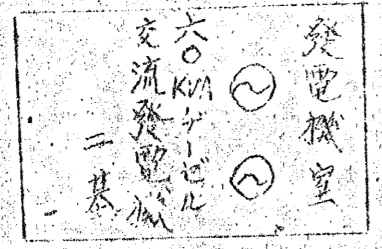 發電機室
六〇KVAヂーゼル
交流發電機
二基